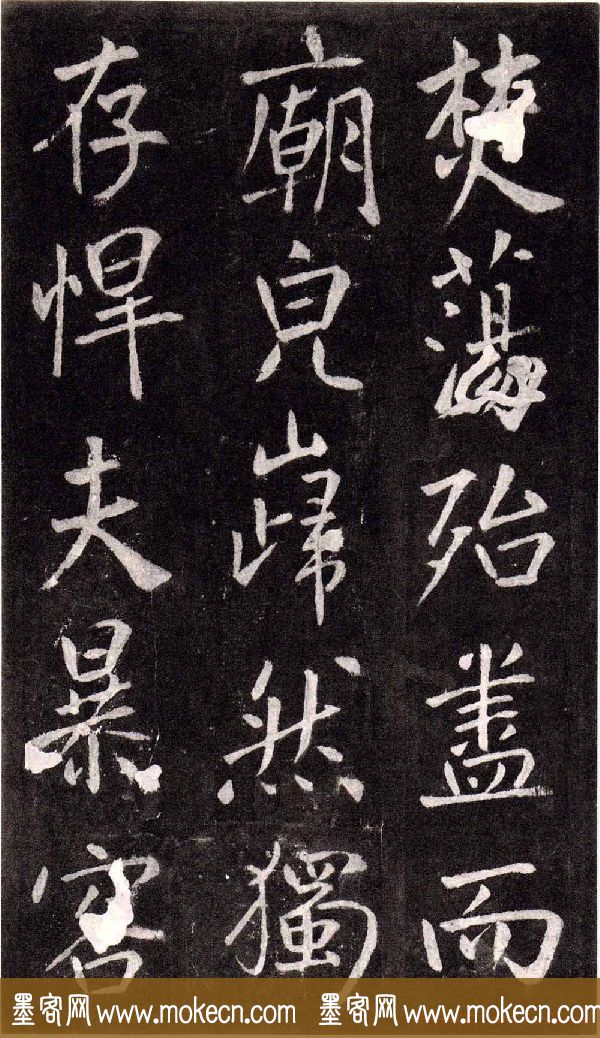 焚蕩殆盡而
廟皃巋然獨
存悍夫暴客
墨客网 www.mokecn.com 墨客网 www.mokecn.com